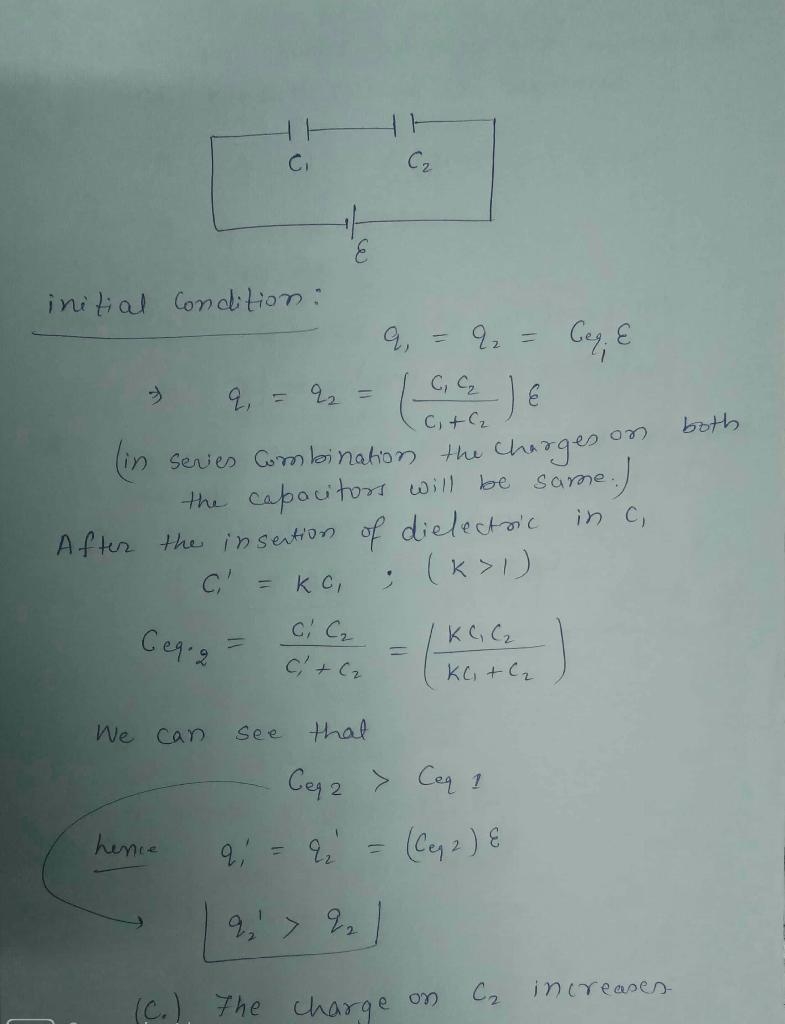 C₁ C₂
ε
initial Condition :
q₁ = q₂ = Ceq₁ ε
⇒ q₁ = q₂ = ( C₁ C₂ / C₁ + C₂ ) ε
(in series Combination the charges on both
the capacitors will be same.)
After the insertion of dielectric in C₁
C₁' = K C₁ ; ( K > 1 )
Ceq.₂ = C₁' C₂ / C₁' + C₂ = ( K C₁ C₂ / K C₁ + C₂ )
We can see that
Ceq 2 > Ceq 1
hence q₁' = q₂' = (Ceq 2) ε
q₂' > q₂
(C.) The charge on C₂ increases